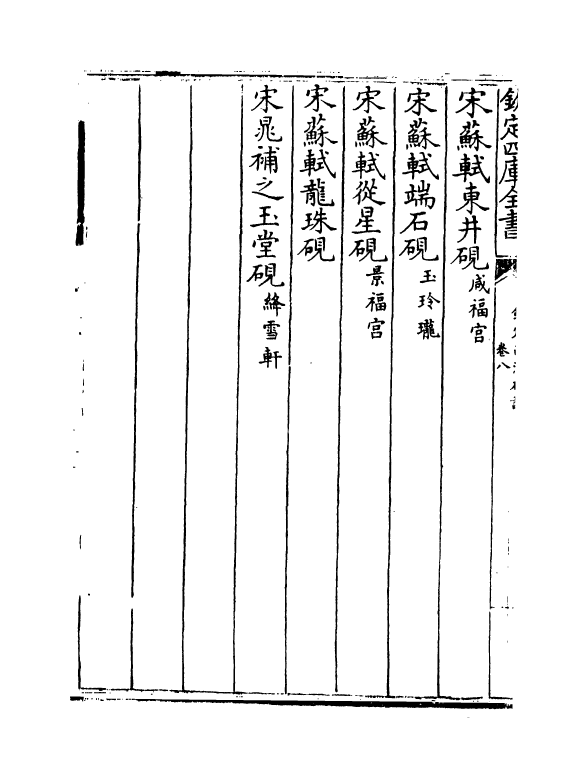 欽定四庫全書
卷八
宋蘇軾東井硯 咸福宫
宋蘇軾端石硯 玉玲瓏
宋蘇軾從星硯 景福宫
宋蘇軾龍珠硯
宋晁補之玉堂硯 絳雪軒